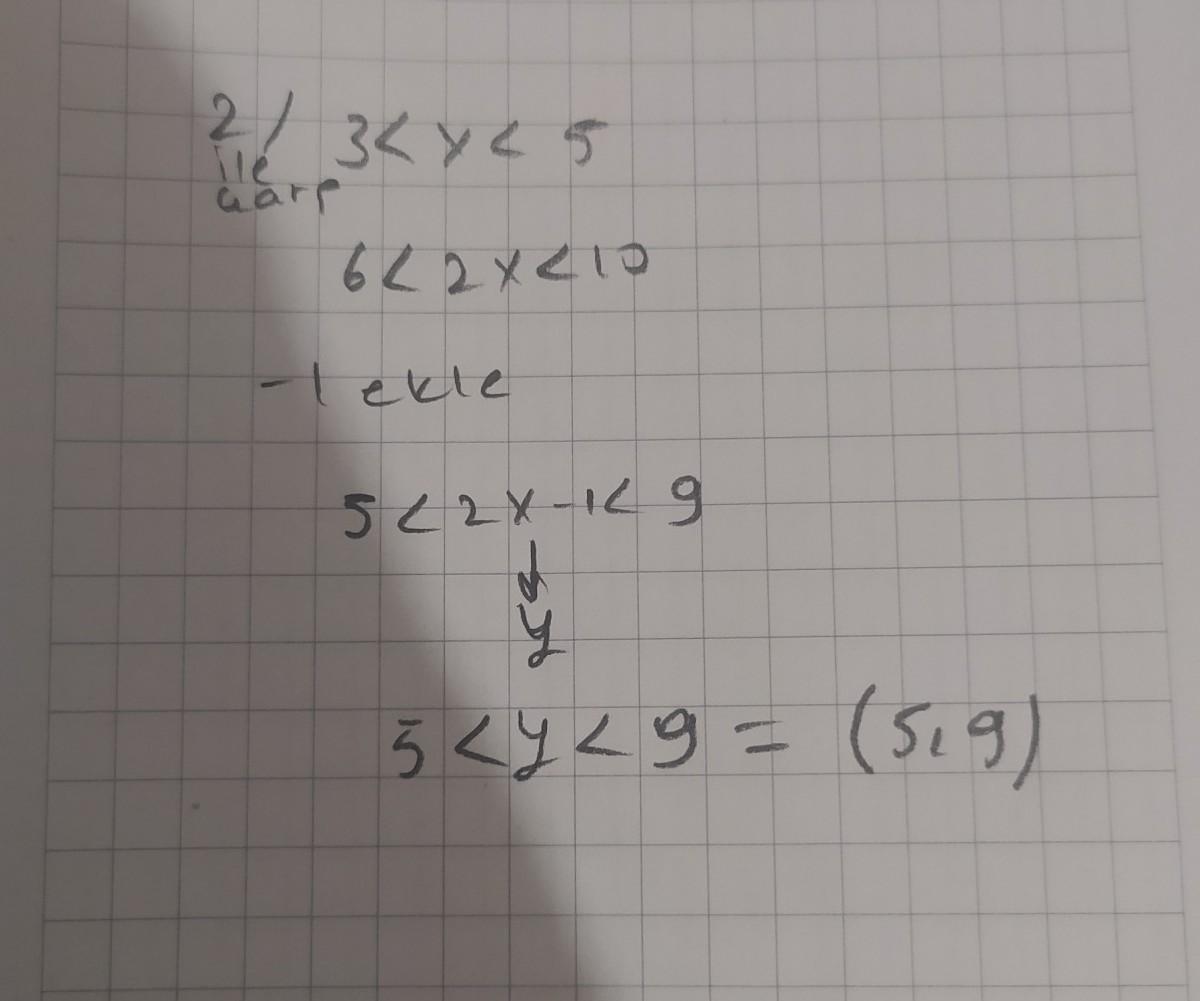 2/ 3 < x < 5
ile
çarp
6 < 2x < 10
-1 ekle
5 < 2x -1 < 9
↓
y
5 < y < 9 = (5, 9)